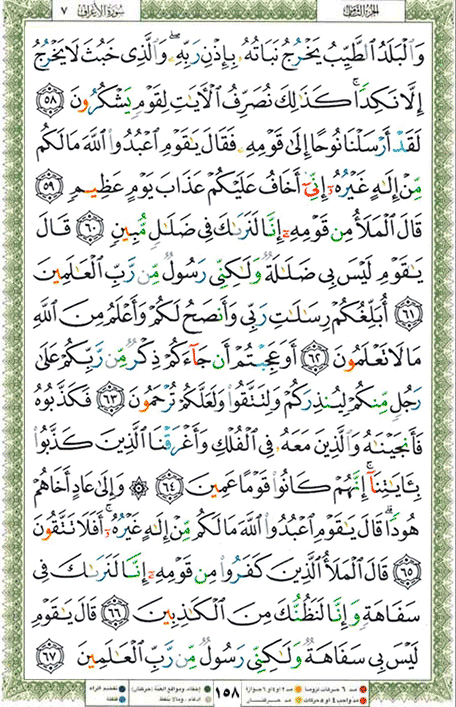 الجزء الثامن
سورة الأعراف
٧
وَالْبَلَدُ الطَّيِّبُ يَخْرُجُ نَبَاتُهُ بِإِذْنِ رَبِّهِ ۖ وَالَّذِي خَبُثَ لَا يَخْرُجُ
إِلَّا نَكِدًا ۚ كَذَٰلِكَ نُصَرِّفُ الْآيَاتِ لِقَوْمٍ يَشْكُرُونَ ٥٨
لَقَدْ أَرْسَلْنَا نُوحًا إِلَىٰ قَوْمِهِ فَقَالَ يَا قَوْمِ اعْبُدُوا اللَّهَ مَا لَكُم
مِّنْ إِلَٰهٍ غَيْرُهُ إِنِّي أَخَافُ عَلَيْكُمْ عَذَابَ يَوْمٍ عَظِيمٍ ٥٩
قَالَ الْمَلَأُ مِن قَوْمِهِ إِنَّا لَنَرَاكَ فِي ضَلَالٍ مُّبِينٍ ٦٠ قَالَ
يَا قَوْمِ لَيْسَ بِي ضَلَالَةٌ وَلَٰكِنِّي رَسُولٌ مِّن رَّبِّ الْعَالَمِينَ
٦١ أُبَلِّغُكُمْ رِسَالَاتِ رَبِّي وَأَنصَحُ لَكُمْ وَأَعْلَمُ مِنَ اللَّهِ
مَا لَا تَعْلَمُونَ ٦٢ أَوَعَجِبْتُمْ أَن جَاءَكُمْ ذِكْرٌ مِّن رَّبِّكُمْ عَلَىٰ
رَجُلٍ مِّنكُمْ لِيُنذِرَكُمْ وَلِتَتَّقُوا وَلَعَلَّكُمْ تُرْحَمُونَ ٦٣ فَكَذَّبُوهُ
فَأَنجَيْنَاهُ وَالَّذِينَ مَعَهُ فِي الْفُلْكِ وَأَغْرَقْنَا الَّذِينَ كَذَّبُوا
بِآيَاتِنَا ۚ إِنَّهُمْ كَانُوا قَوْمًا عَمِينَ ٦٤ ۞ وَإِلَىٰ عَادٍ أَخَاهُمْ
هُودًا ۗ قَالَ يَا قَوْمِ اعْبُدُوا اللَّهَ مَا لَكُم مِّنْ إِلَٰهٍ غَيْرُهُ ۚ أَفَلَا تَتَّقُونَ
٦٥ قَالَ الْمَلَأُ الَّذِينَ كَفَرُوا مِن قَوْمِهِ إِنَّا لَنَرَاكَ فِي
سَفَاهَةٍ وَإِنَّا لَنَظُنُّكَ مِنَ الْكَاذِبِينَ ٦٦ قَالَ يَا قَوْمِ
لَيْسَ بِي سَفَاهَةٌ وَلَٰكِنِّي رَسُولٌ مِّن رَّبِّ الْعَالَمِينَ ٦٧
١٥٨